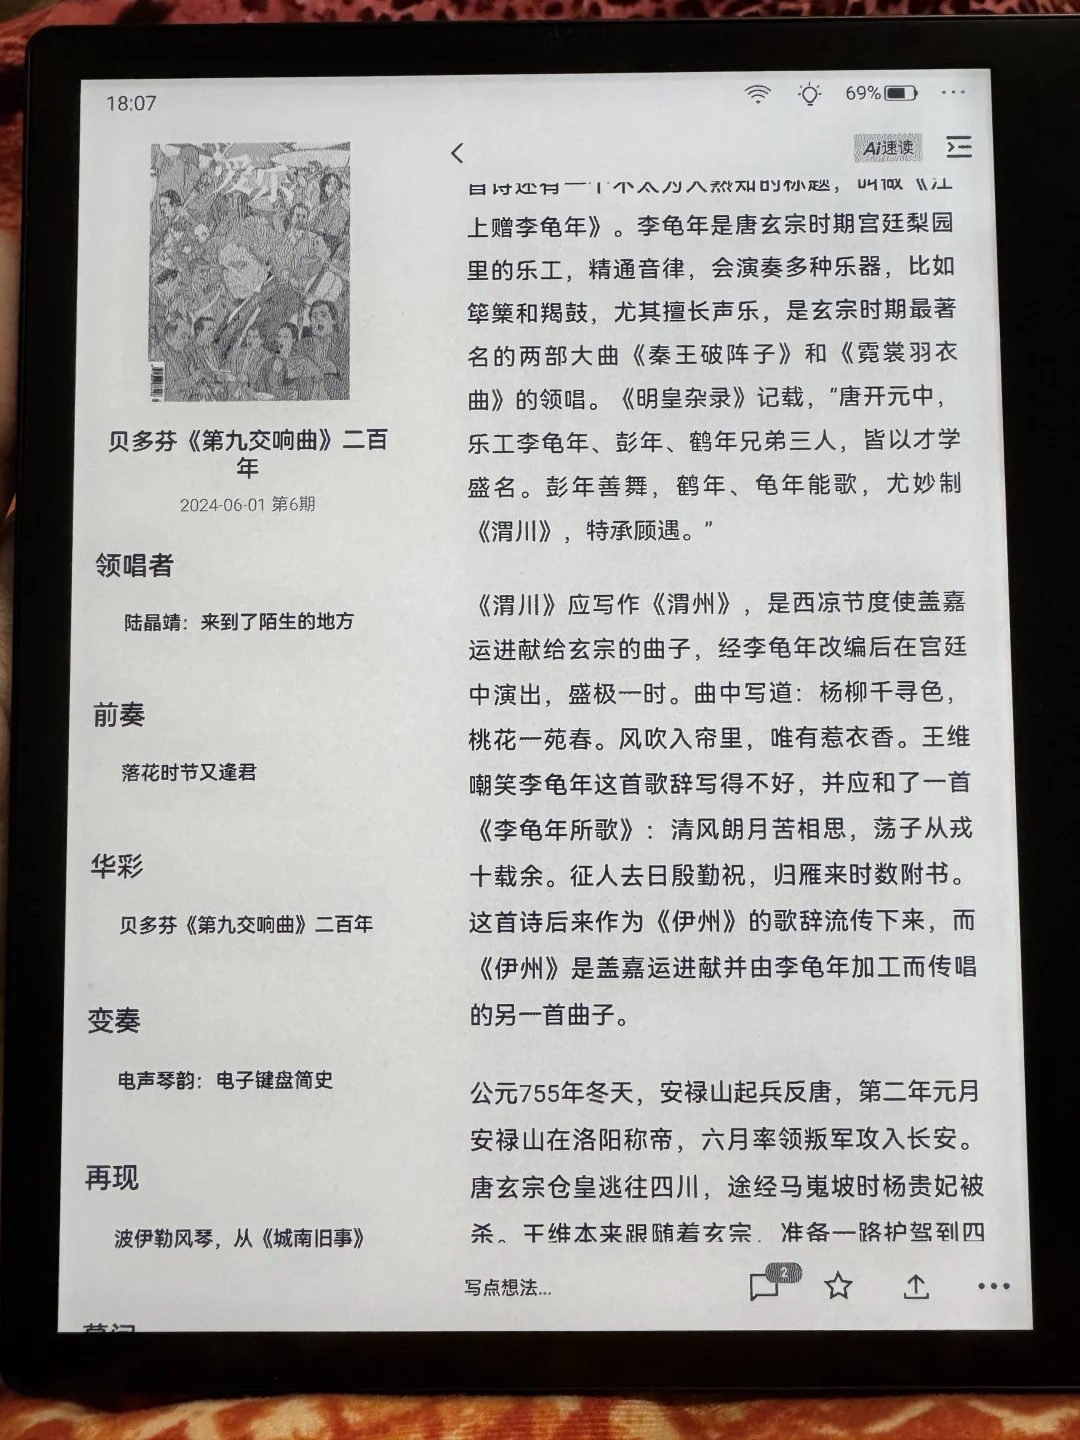 18:07
69%
爱乐
贝多芬《第九交响曲》二百
年
2024-06-01 第6期
领唱者
陆晶靖：来到了陌生的地方
前奏
落花时节又逢君
华彩
贝多芬《第九交响曲》二百年
变奏
电声琴韵：电子键盘简史
再现
波伊勒风琴，从《城南旧事》
Ai速读
首诗还有一个不太为人熟知的标题，叫做《江
上赠李龟年》。李龟年是唐玄宗时期宫廷梨园
里的乐工，精通音律，会演奏多种乐器，比如
筚篥和羯鼓，尤其擅长声乐，是玄宗时期最著
名的两部大曲《秦王破阵子》和《霓裳羽衣
曲》的领唱。《明皇杂录》记载，“唐开元中，
乐工李龟年、彭年、鹤年兄弟三人，皆以才学
盛名。彭年善舞，鹤年、龟年能歌，尤妙制
《渭川》，特承顾遇。”
《渭川》应写作《渭州》，是西凉节度使盖嘉
运进献给玄宗的曲子，经李龟年改编后在宫廷
中演出，盛极一时。曲中写道：杨柳千寻色，
桃花一苑春。风吹入帘里，唯有惹衣香。王维
嘲笑李龟年这首歌辞写得不好，并应和了一首
《李龟年所歌》：清风朗月苦相思，荡子从戎
十载余。征人去日殷勤祝，归雁来时数附书。
这首诗后来作为《伊州》的歌辞流传下来，而
《伊州》是盖嘉运进献并由李龟年加工而传唱
的另一首曲子。
公元755年冬天，安禄山起兵反唐，第二年元月
安禄山在洛阳称帝，六月率领叛军攻入长安。
唐玄宗仓皇逃往四川，途经马嵬坡时杨贵妃被
杀。王维本来跟随着玄宗，准备一路护驾到四
写点想法...
2